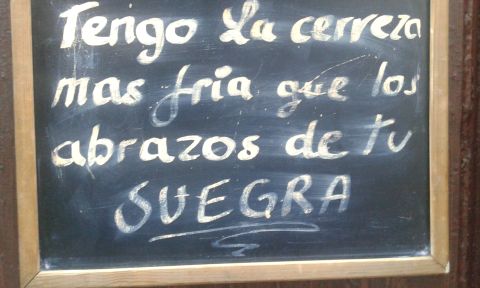 Tengo La cerveza
mas fria que los
abrazos de tu
SUEGRA